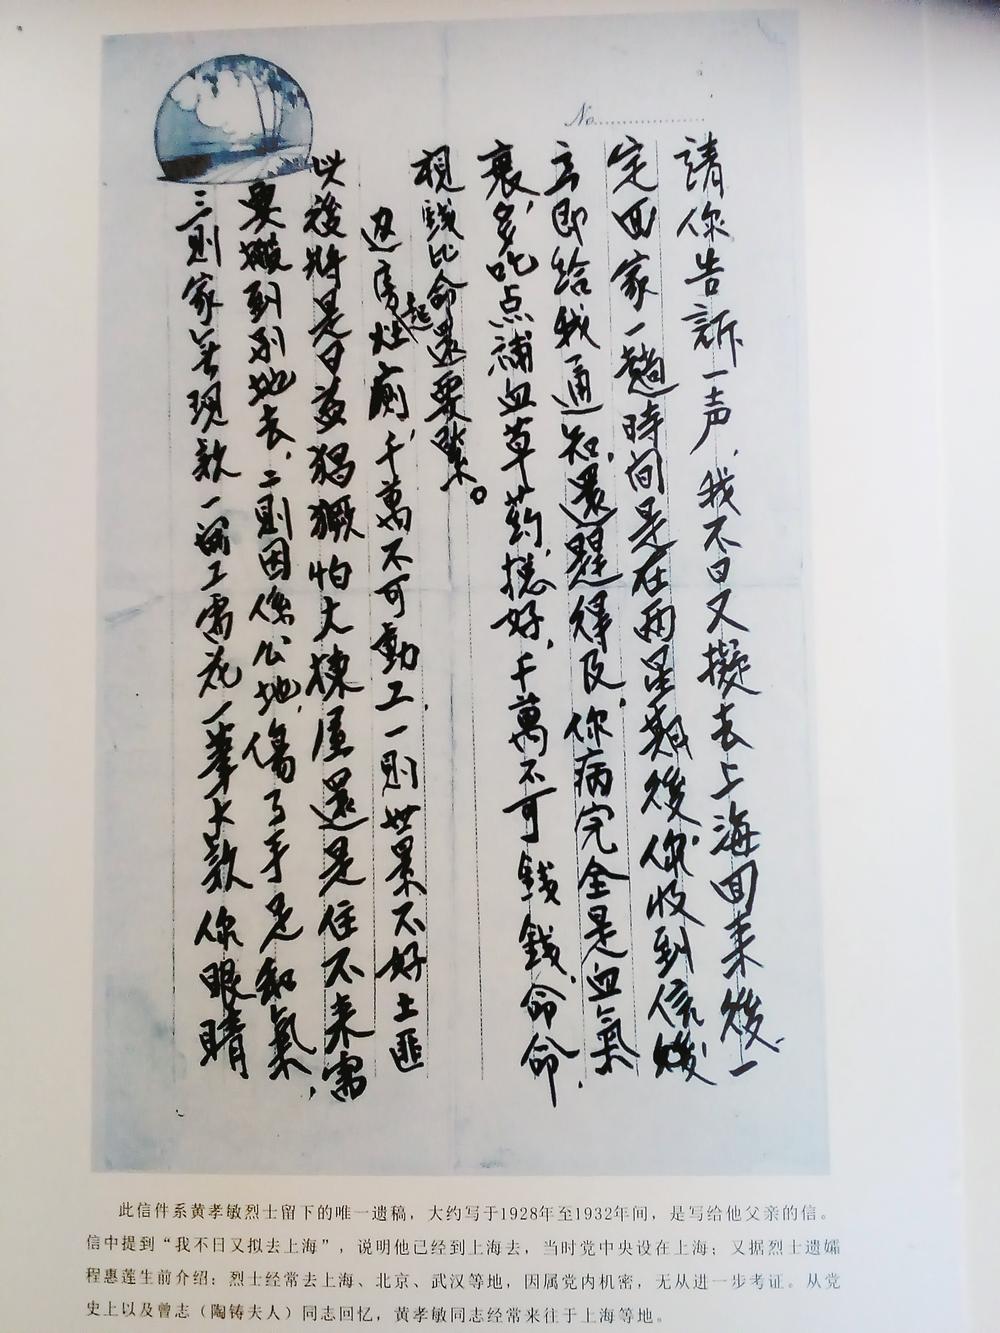 No.
請你告訴一声,我不日又擬去上海回来後,一
定回家一趟時间是在兩星期後,你收到信後
立即给我通知,還趕得及,你病完全是血氣
衰,多吃点補血草药,摠好,千萬不可錢錢,命命,
視錢比命還要緊。
边房起灶廁,千萬不可動工,一則世景不好土匪
以後將是日益猖獗怕大棟屋還是住不来需
要搬到别地去,二則因係公地,傷了手足和氣,
三則家无现款一工需花一筆大款你眼睛
此信件系黄孝敏烈士留下的唯一遗稿,大约写于1928年至1932年间,是写给他父亲的信。
信中提到“我不日又拟去上海”,说明他已经到上海去,当时党中央设在上海;又据烈士遗孀
程惠莲生前介绍:烈士经常去上海、北京、武汉等地,因属党内机密,无从进一步考证。从党
史上以及曾志(陶铸夫人)同志回忆,黄孝敏同志经常来往于上海等地。